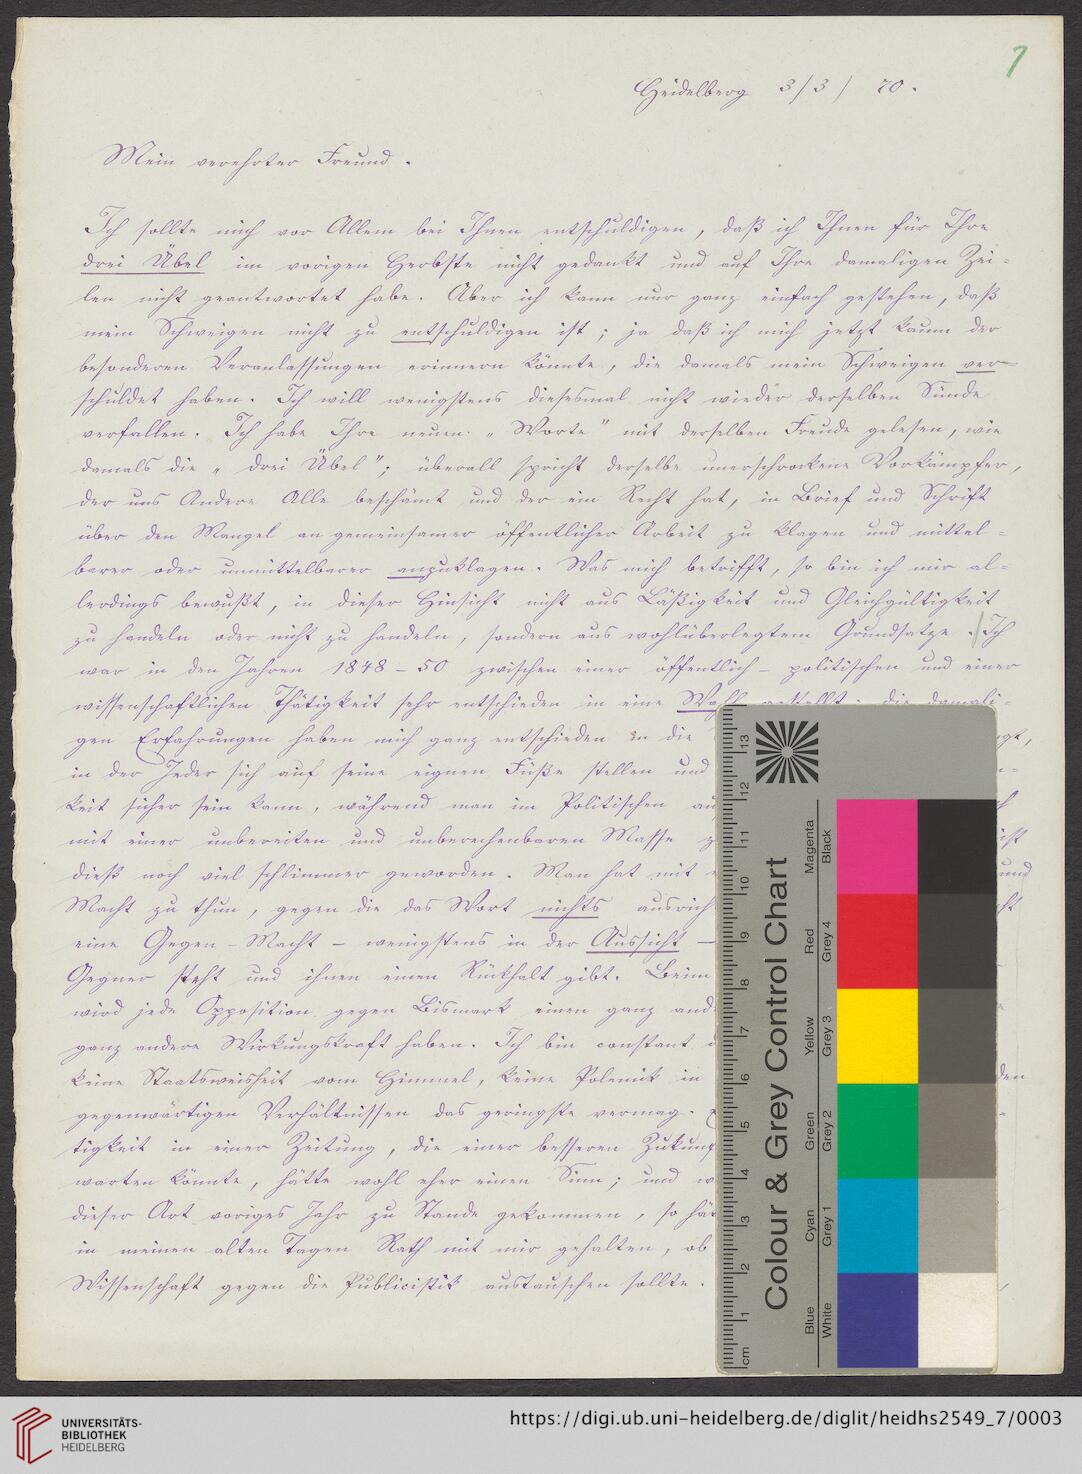 1
Heidelberg 3/3/ 70.
Mein verehrter Freund.
Ich sollte mich vor Allem bei Ihnen entschuldigen, daß ich Ihnen für Ihre
drei Übel im vorigen Herbste nicht gedankt und auf Ihre damaligen Zei-
len nicht geantwortet habe. Aber ich kann nur ganz einfach gestehen, daß
mein Schweigen nicht zu entschuldigen ist; ja daß ich mich jetzt kaum der
besonderen Veranlassungen erinnern könnte, die damals mein Schweigen ver-
schuldet haben. Ich will wenigstens diesesmal nicht wieder derselben Sünde
verfallen. Ich habe Ihre neuen „Worte" mit derselben Freude gelesen, wie
damals die „drei Übel"; überall spricht derselbe unerschrockene Vorkämpfer,
der uns Andere Alle beschämt und der ein Recht hat, in Brief und Schrift
über den Mangel an gemeinsamer öffentlicher Arbeit zu klagen und mittel-
barer oder unmittelbarer anzuklagen. Was mich betrifft, so bin ich mir al-
lerdings bewußt, in dieser Hinsicht nicht aus Läßigkeit und Gleichgültigkeit
zu handeln oder nicht zu handeln, sondern aus wohlüberlegtem Grundsatze. Ich
war in den Jahren 1848-50 zwischen einer öffentlich-politischen und einer
wissenschaftlichen Thätigkeit sehr entschieden in eine Wahl gestellt. die damali-
gen Erfahrungen haben mich ganz entschieden in die
in der Jeder sich auf seine eignen Füße stellen und
keit sicher sein kann, während man im Politischen
mit einer unbereiten und unberechenbaren Masse
dieß noch viel schlimmer geworden. Man hat mit und
Macht zu thun, gegen die das Wort nichts
eine Gegen-Macht – wenigstens in der Aussicht –
Gegner steht und ihnen einen Rückhalt gibt. Beim
wird jede Opposition gegen Bismark einen ganz
ganz andere Wirkungskraft haben. Ich bin constant
keine Staatsweisheit vom Himmel, keine Polemik in
gegenwärtigen Verhältnissen das geringste vermag.
tigkeit in einer Zeitung, die einer besseren
warten könnte, hätte wohl eher einen Sinn; und
dieser Art voriges Jahr zu Stande gekommen, so
in meinen alten Tagen Rath mit mir gehalten, ob
Wissenschaft gegen die Publicistik austauschen sollte.
Colour & Grey Control Chart
Blue Cyan Green Yellow Red Magenta
White Grey 1 Grey 2 Grey 3 Grey 4 Black
cm 1 2 3 4 5 6 7 8 9 10 11 12 13
UNIVERSITÄTS-
BIBLIOTHEK
HEIDELBERG
https://digi.ub.uni-heidelberg.de/diglit/heidhs2549_7/0003